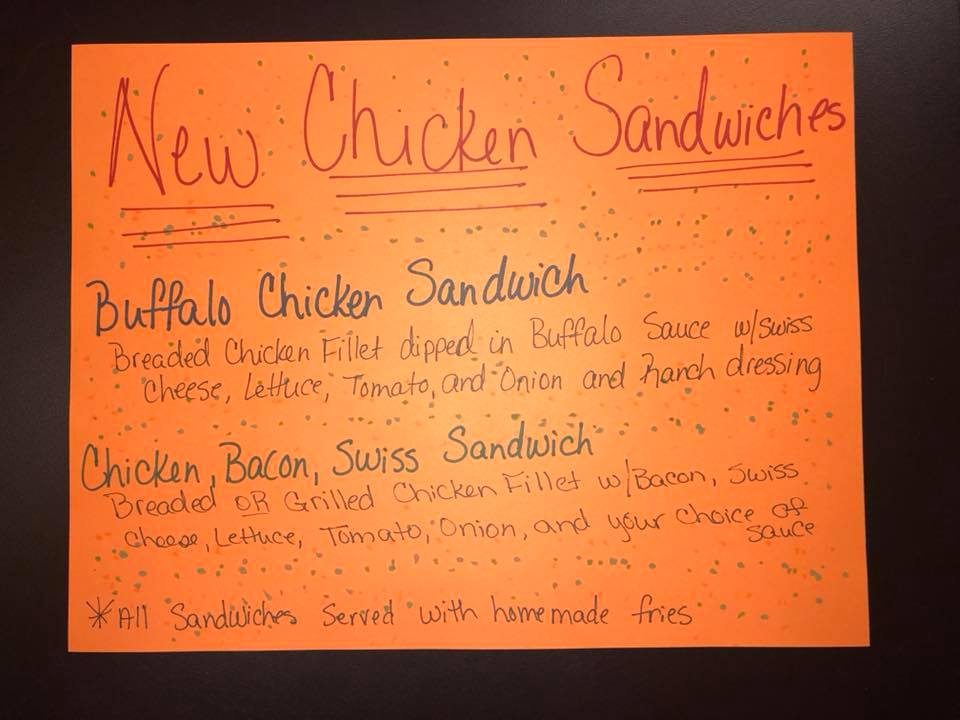 New Chicken Sandwiches
Buffalo Chicken Sandwich
Breaded Chicken Fillet dipped in Buffalo Sauce w/swiss
Cheese, Lettuce, Tomato, and Onion and Ranch dressing
Chicken, Bacon, Swiss Sandwich
Breaded OR Grilled Chicken Fillet w/Bacon, Swiss
Cheese, Lettuce, Tomato, Onion, and your choice of
sauce
*All Sandwiches Served with homemade fries